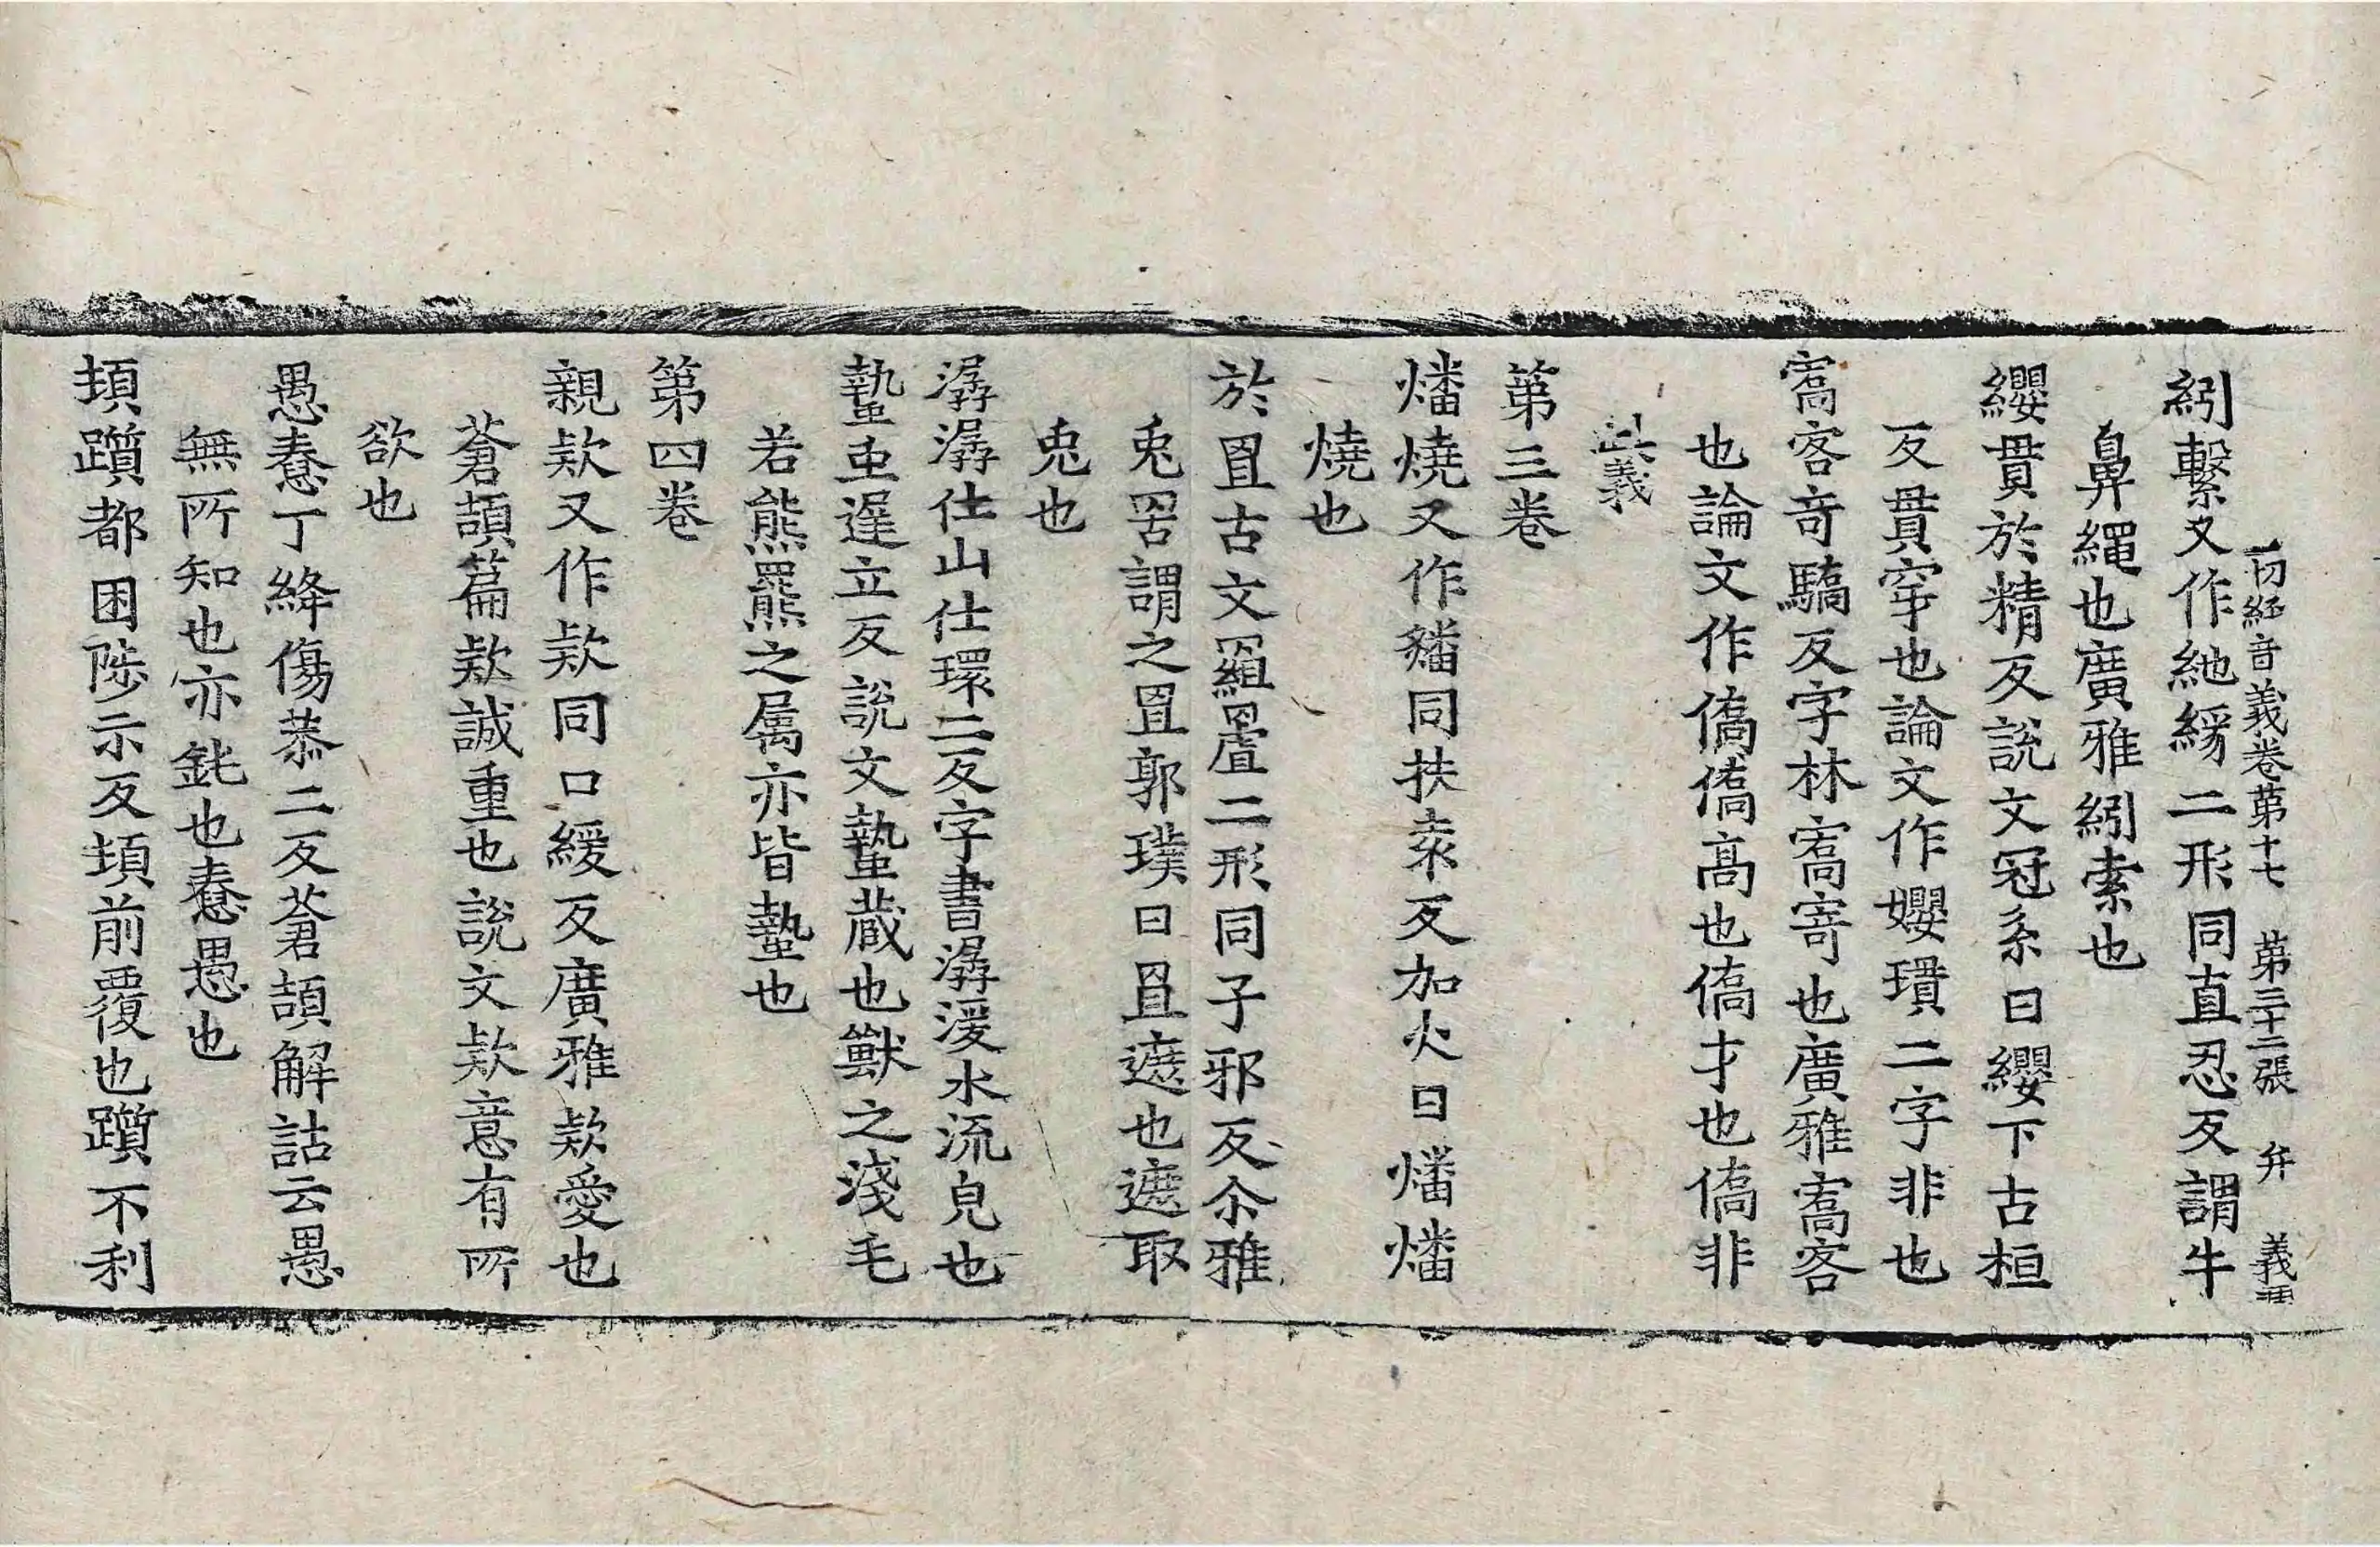 一切経音義卷苐十七 苐三十二張 弁 義
紖繫又作紖緣二形同直忍反謂牛
鼻繩也廣雅紖索也
纓貫於精反說文冠系曰纓下古桓
反貫穿也論文作孆瓆二字非也
寯客竒驕反字林寯寄也廣雅寯客
也論文作僑僑高也僑才也僑非
此義
第三卷
燔燒又作䉒同扶袁反加火曰燔燔
燒也
於罝古文罝二形同子邪反尒雅
兎罟謂之罝郭璞曰罝遮也遮取
兎也
潺潺仕山仕環二反字書潺湲水流皃也
蟄䖝遟立反說文蟄藏也獸之淺毛
若熊羆之属亦皆蟄也
第四卷
親欵又作款同口緩反廣雅欵愛也
蒼頡篇欵誠重也說文欵意有所
欲也
愚憃丁絳傷恭二反蒼頡解詁云愚
無所知也亦鈍也憃愚也
頓躓都困陟示反頓前覆也躓不利